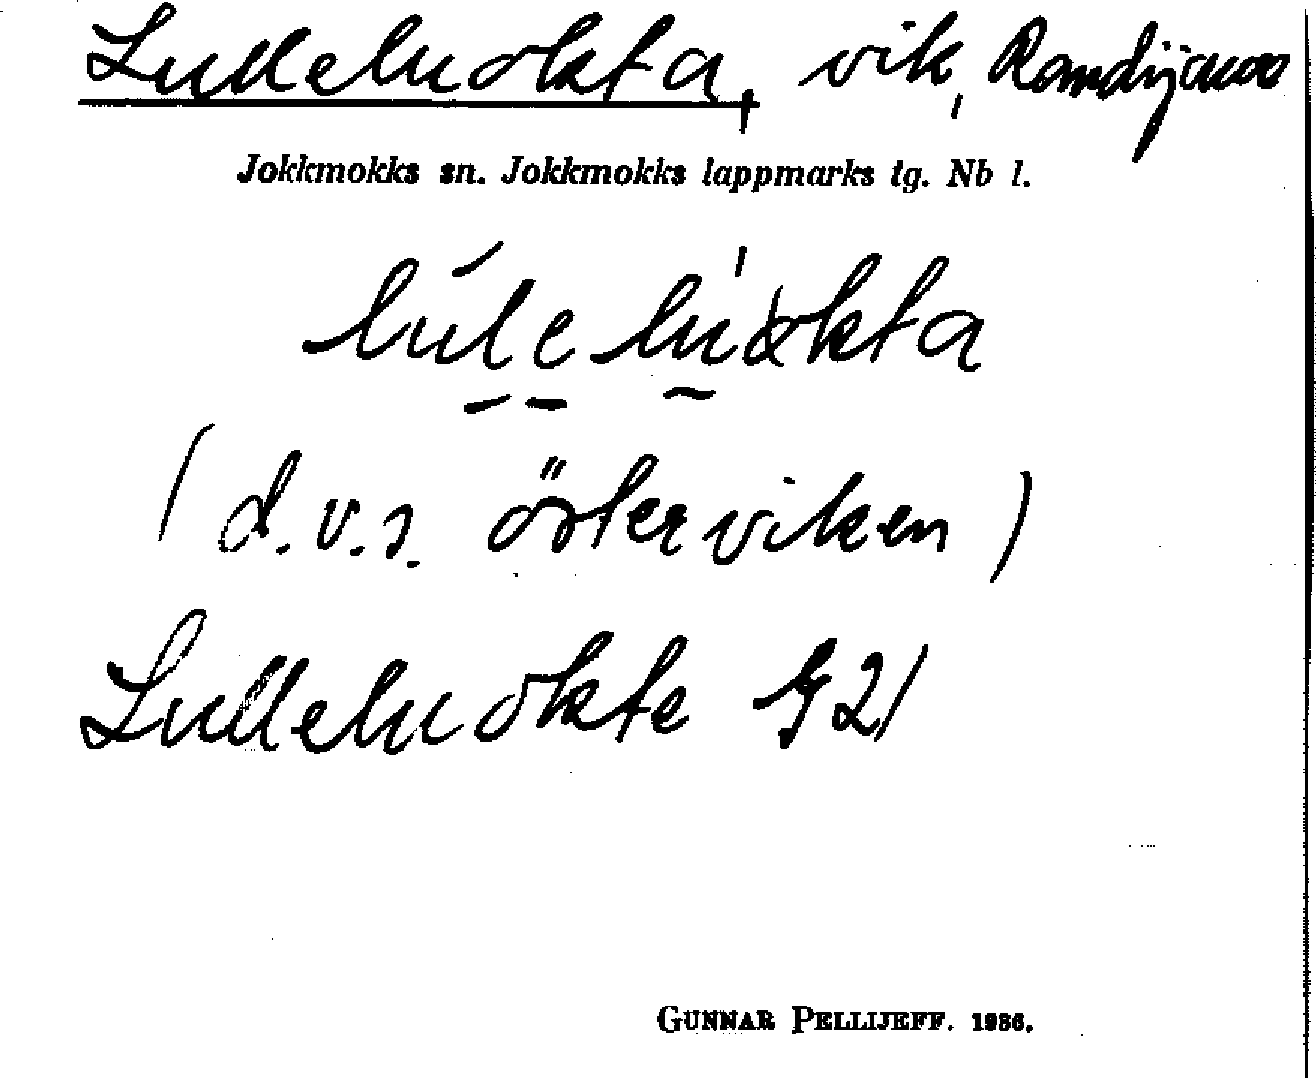 Lulleluokta, vik, Randijaure
Jokkmokks sn. Jokkmokks lappmarks tg. Nb l.
lúleluokta
(d.v.s. österviken)
Lulleluokte G21
GUNNAR PELLIJEFF. 1956.